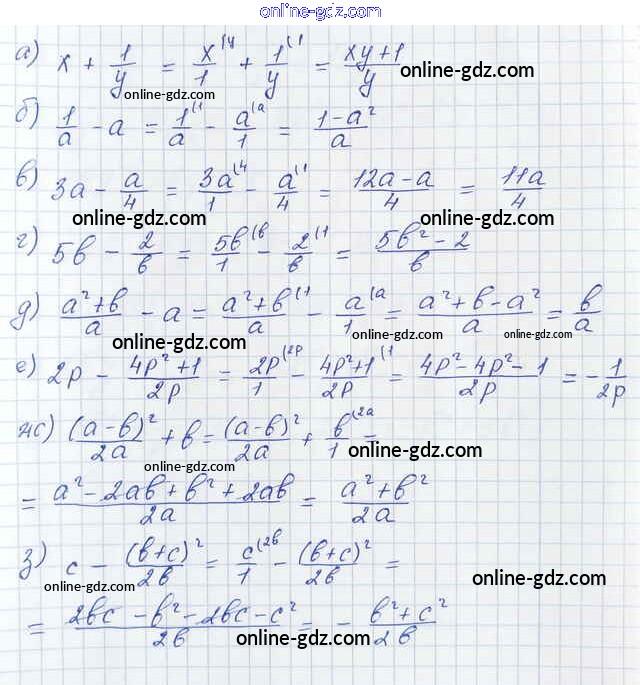 online-gdz.com
а) x + 1/y = x^(y/1 + 1^(1/y = xy+1/y online-gdz.com
online-gdz.com
б) 1/a - a = 1^(1/a - a^(a/1 = 1-a²/a
online-gdz.com
в) 3a - a/4 = 3a^(4/1 - a^(1/4 = 12a-a/4 = 11a/4
online-gdz.com online-gdz.com
г) 5b - 2/b = 5b^(b/1 - 2^(1/b = 5b²-2/b
д) a²+b/a - a = a²+b^(1/a - a^(a/1 = a²+b-a²/a = b/a
online-gdz.com online-gdz.com online-gdz.com
е) 2p - 4p²+1/2p = 2p^(2p/1 - 4p²+1^(1/2p = 4p²-4p²-1/2p = -1/2p
online-gdz.com
ж) (a-b)²/2a + b = (a-b)²/2a + b^(2a/1 =
online-gdz.com
= a²-2ab+b²+2ab/2a = a²+b²/2a
з) c - (b+c)²/2b = c^(2b/1 - (b+c)²/2b =
online-gdz.com online-gdz.com
= 2bc-b²-2bc-c²/2b = - b²+c²/2b
online-gdz.com